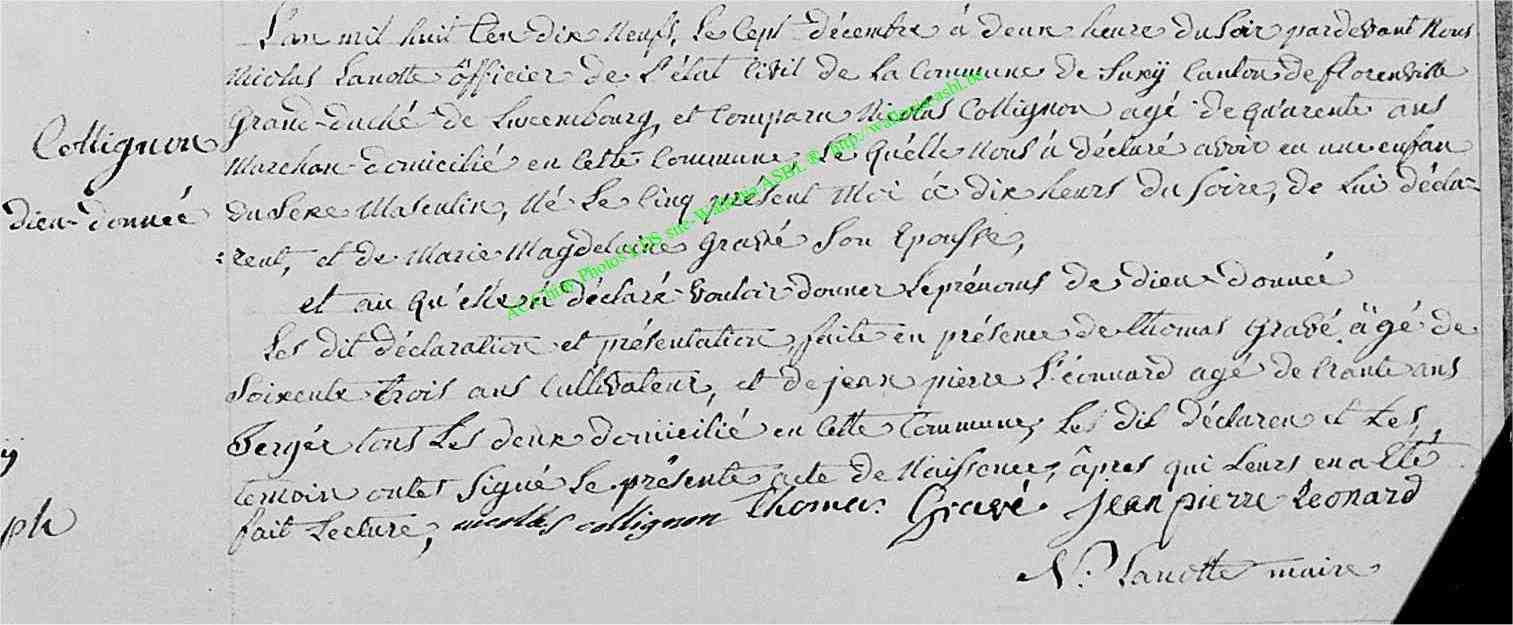 L'an mil huit Cen dix Neufs, Le Cept décembre à deux heure du Soir pardevant Nous
Nicolas Lanotte ôfficier de L'état Civil de La Commune de Suxÿ Canton de florenville
Grand-duché de Luxembourg, et Comparu Nicolas Collignon agé de quarente ans
Collignon
Marchan domicilié en Cette Commune, Le quélle Nous à déclaré avoir eu une enfan
dieu-donnéé
du Sexe Masculin, Né Le Cinq présent Moi à dix heurs du Soire, de Lui décla-
:rent, et de Marie Magdelaine Gravé Son Epousse,
et au qu'elle à déclaré Vouloir donner Le prénoms de dieu donnéé
Les dit déclaration et présentation faite en présence de thomas Gravé âgé de
Soixente trois ans Cultivateur, et de jean pierre L'éonnard agé de trante ans
Bergér tous Les deux domicilié en Cette Commune, Les dit déclaren et tes,
temoin ontes Signé Le présente acte de Naissence, âpres qui Leurs en a Eté
fait Lecture, nicolas collignon thomas Gravé jean pierre Leonard
ph
N. Lanotte maire